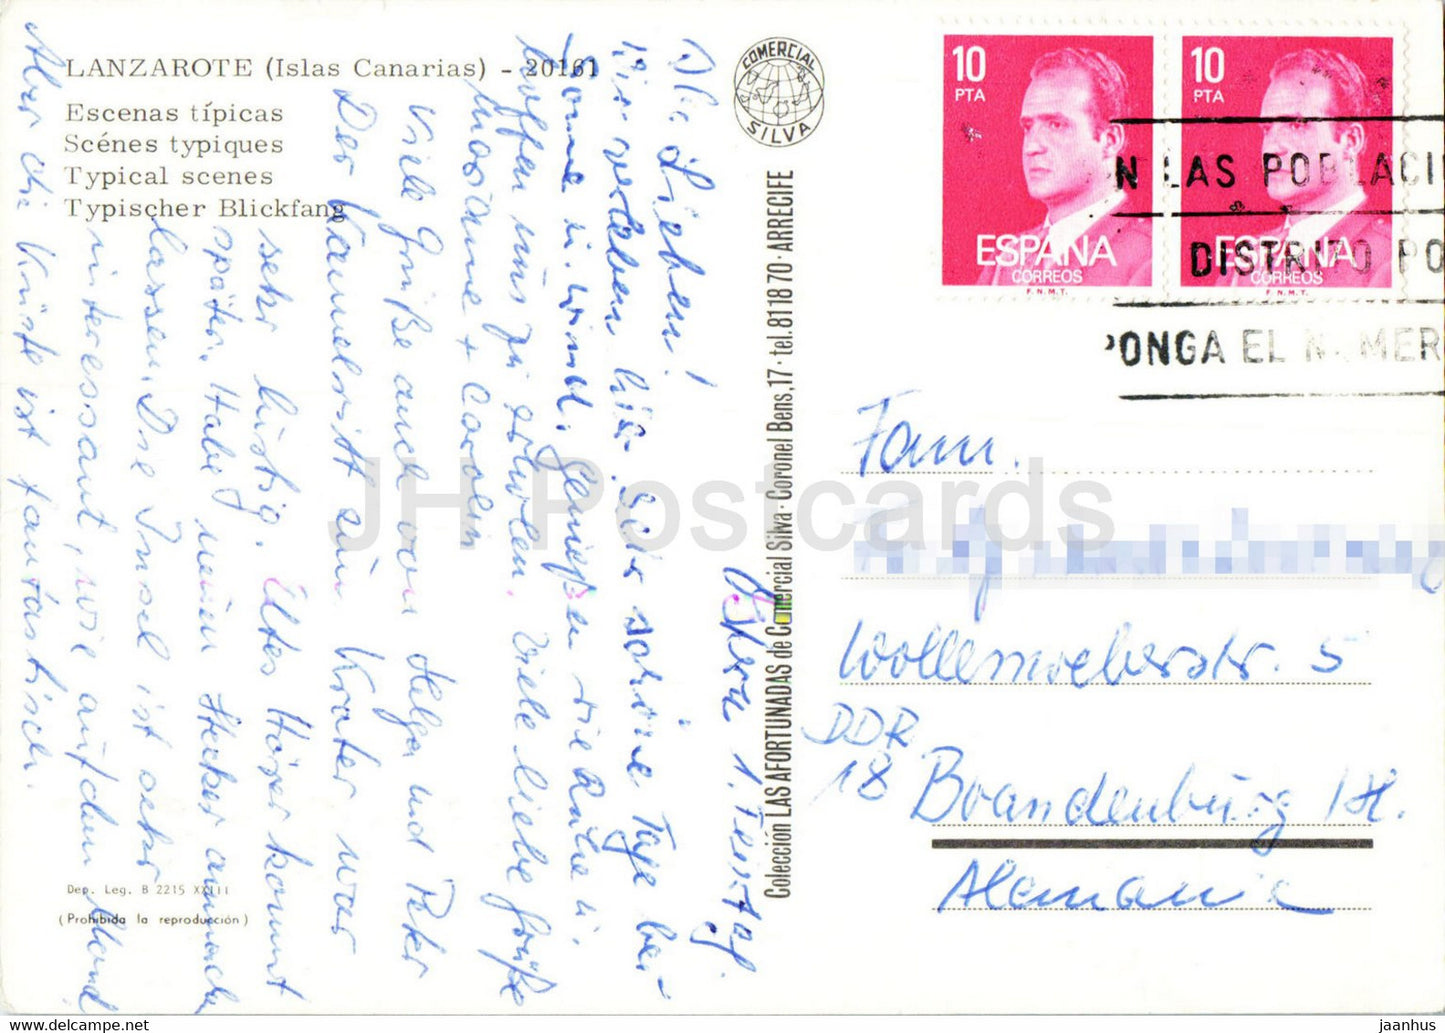 LANZAROTE (Islas Canarias) - 20161
Escenas típicas
Scénes typiques
Typical scenes
Typischer Blickfang
Dep. Leg. B 2215 XXIII
(Prohibida la reproducción)
COMERCIAL
SILVA
Colección LAS AFORTUNADAS de Comercial Silva - Coronel Bens, 17 - tel. 81 18 70 - ARRECIFE
10
PTA
ESPAÑA
CORREOS
F.N.M.T.
10
PTA
ESPAÑA
CORREOS
F.N.M.T.
N LAS POBLACI
DISTRITO PO
PONGA EL NUMER
1. Festtag
Ihr Lieben!
Wir verleben hier sehr schöne Tage bei
Sonne u. Wind. Genießen die Ruhe u.
hoffen uns zu erholen. Viele liebe Grüße
Marianne + Carolin
Viele Grüße auch von Helga und Peter
Der Kamelritt zum Krater war
sehr lustig. Utes Hörer kommt
später. Habe meinen Stecker annach
lassen. Die Insel ist sehr
interessant, wie auf dem Mond
Aber die Küste ist fantastisch.
Fam.
Wollenweberstr. 5
DDR
18 Brandenburg / H.
Alemania
JH Postcards
jaanhus